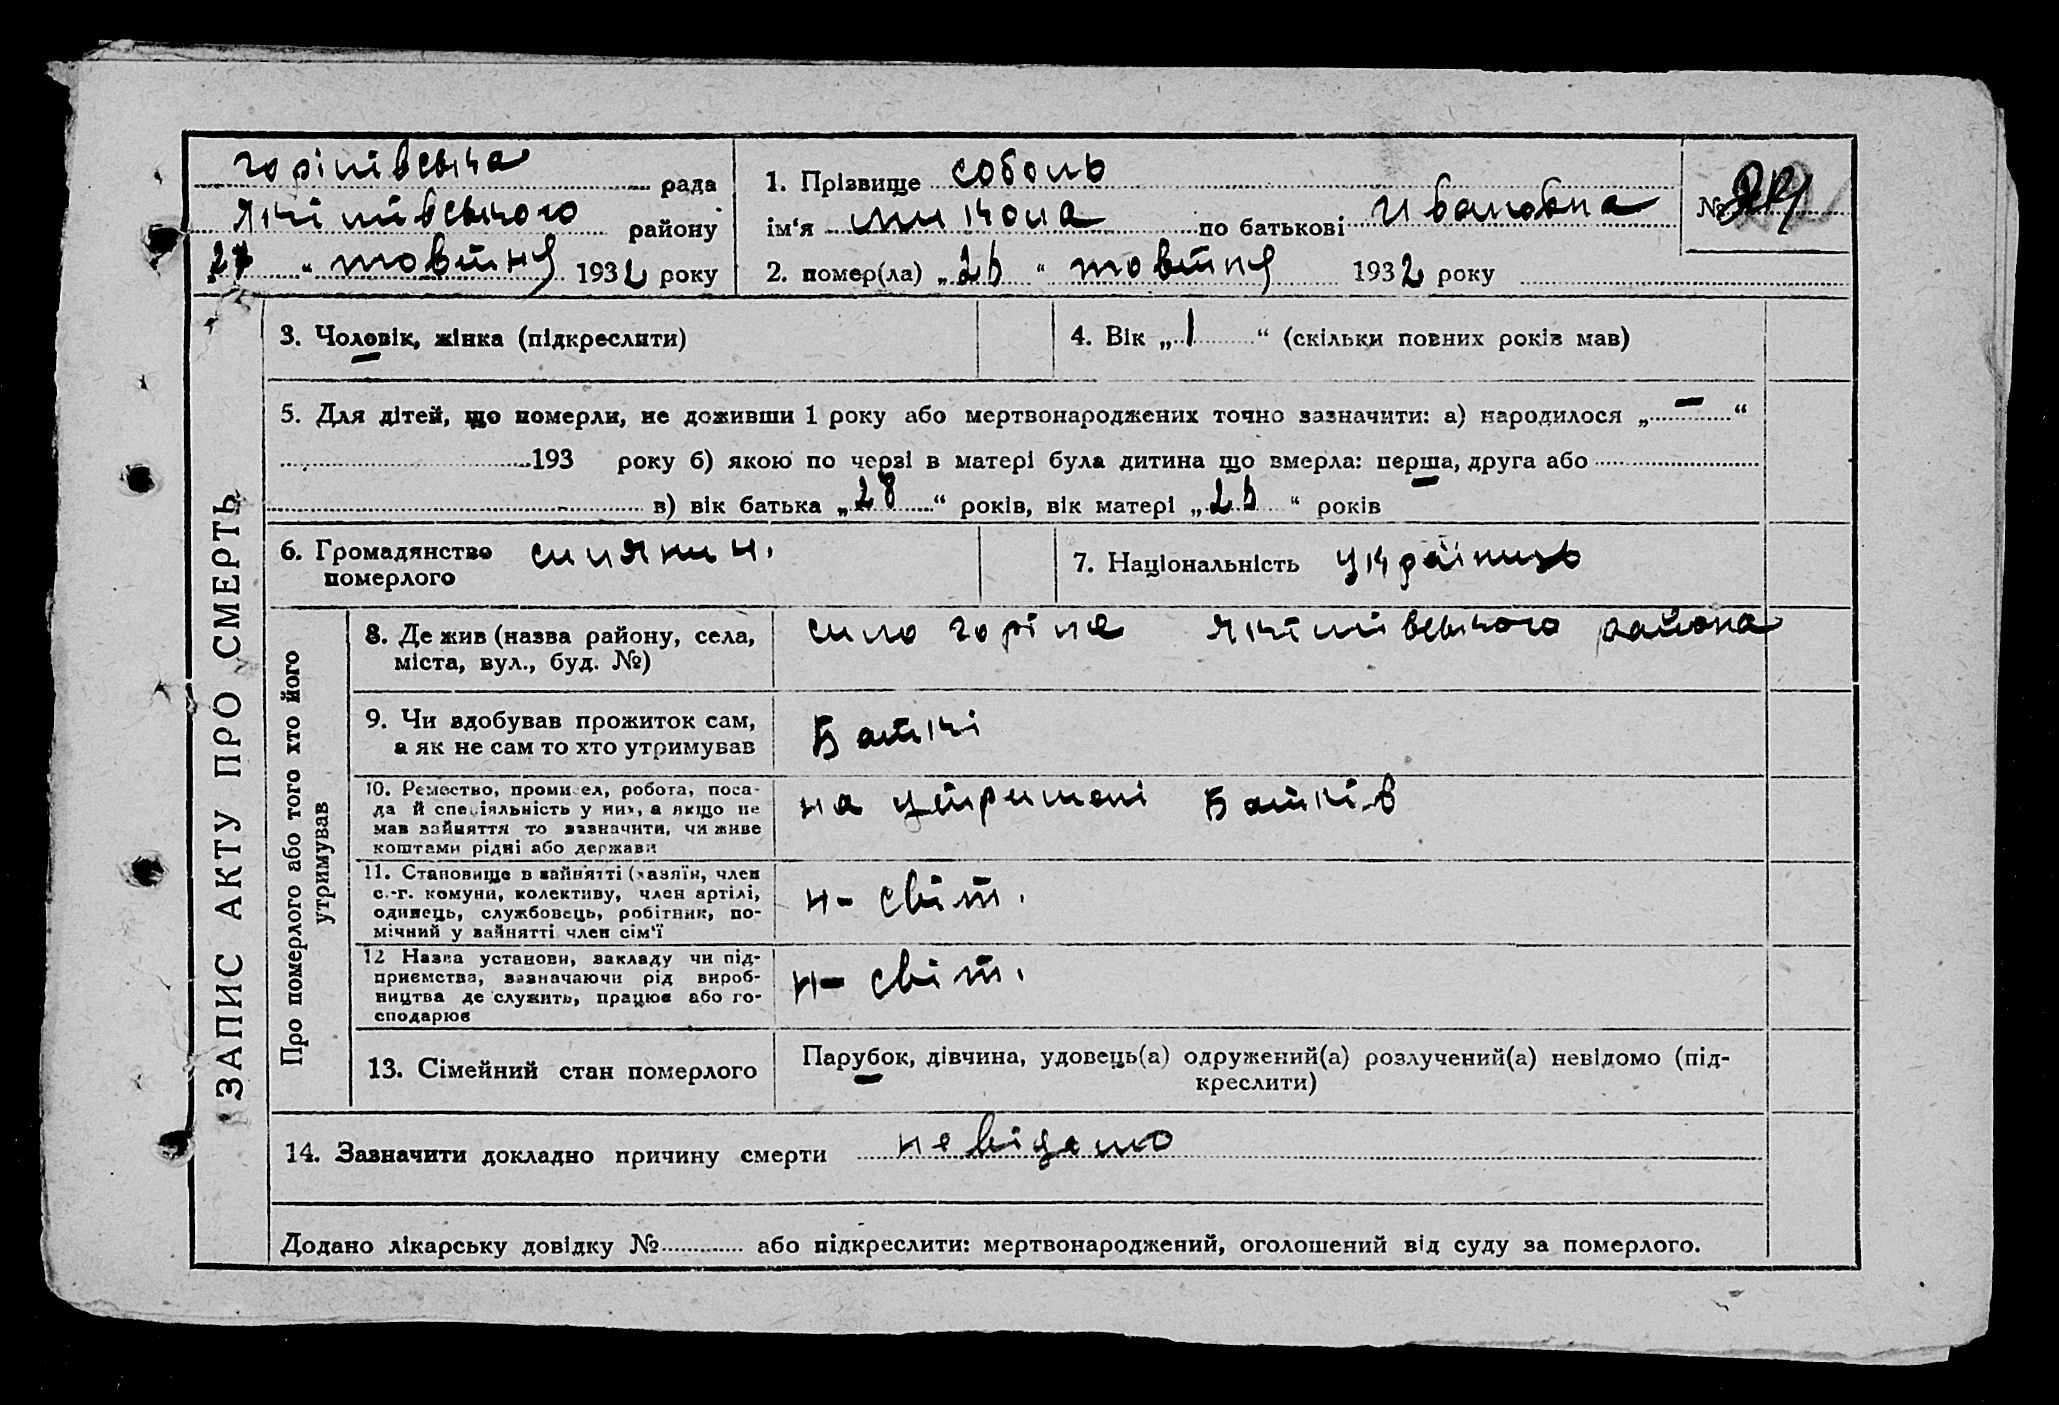 горінівська рада
Якімівського району
27 " жовтня 1932 року
1. Прізвище соболь
ім'я микола по батькові Ивановна
2. помер(ла) „25 " жовтня 1932 року
№
ЗАПИС АКТУ ПРО СМЕРТЬ
3. Чоловік, жінка (підкреслити)
4. Вік „1" (скільки повних років мав)
5. Для дітей, що померли, не доживши 1 року або мертвонароджених точно зазначити: а) народилося „—"
193 року б) якою по черзі в матері була дитина що вмерла: перша, друга або
в) вік батька „28" років, вік матері „25" років
6. Громадянство
померлого
силянин.
7. Національність українць
Про померлого або того хто його
утримував
8. Де жив (назва району, села,
міста, вул., буд. №)
сило Якімівського района
9. Чи здобував прожиток сам,
а як не сам то хто утримував
Баткі
10. Ремество, промисел, робота, поса-
да й спеціяльність у них, а якщо не
мав зайняття то зазначити, чи живе
коштами рідні або держави
на утримані Батків
11. Становище в зайнятті (хазяїн, член
с.-г. комуни, колективу, член артілі,
одинець, службовець, робітник, по-
мічний у зайнятті член сім'ї
12 Назва установи, закладу чи під-
приємства, зазначаючи рід вироб-
ництва де служить, працює або го-
сподарює
13. Сімейний стан померлого
Парубок, дівчина, удовець(а) одружений(а) розлучений(а) невідомо (під-
креслити)
14. Зазначити докладно причину смерти невідомо
Додано лікарську довідку № або підкреслити: мертвонароджений, оголошений від суду за померлого.